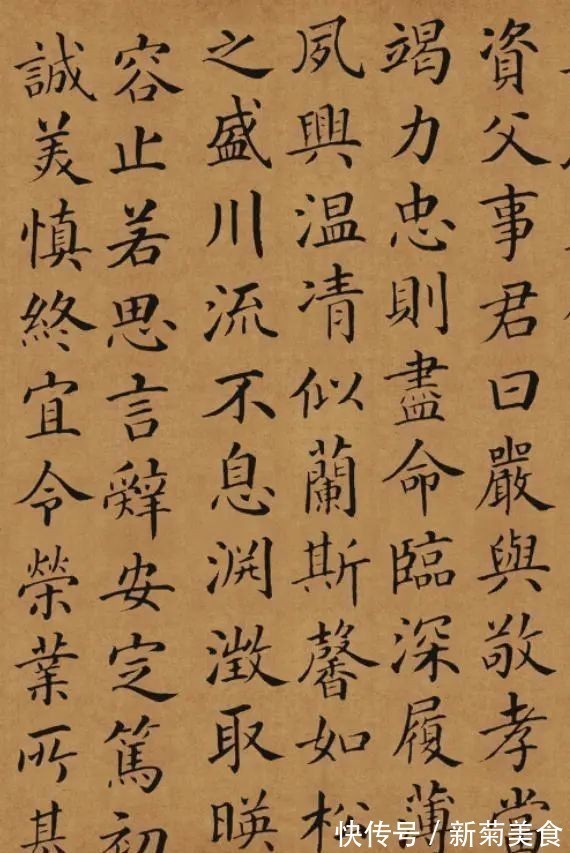 資父事君曰嚴與敬孝當
竭力忠則盡命臨深履薄
夙興温凊似蘭斯馨如松
之盛川流不息淵澂取暎
容止若思言辤安定篤初
誠美慎終宜令榮業所基
快传号／新菊美食